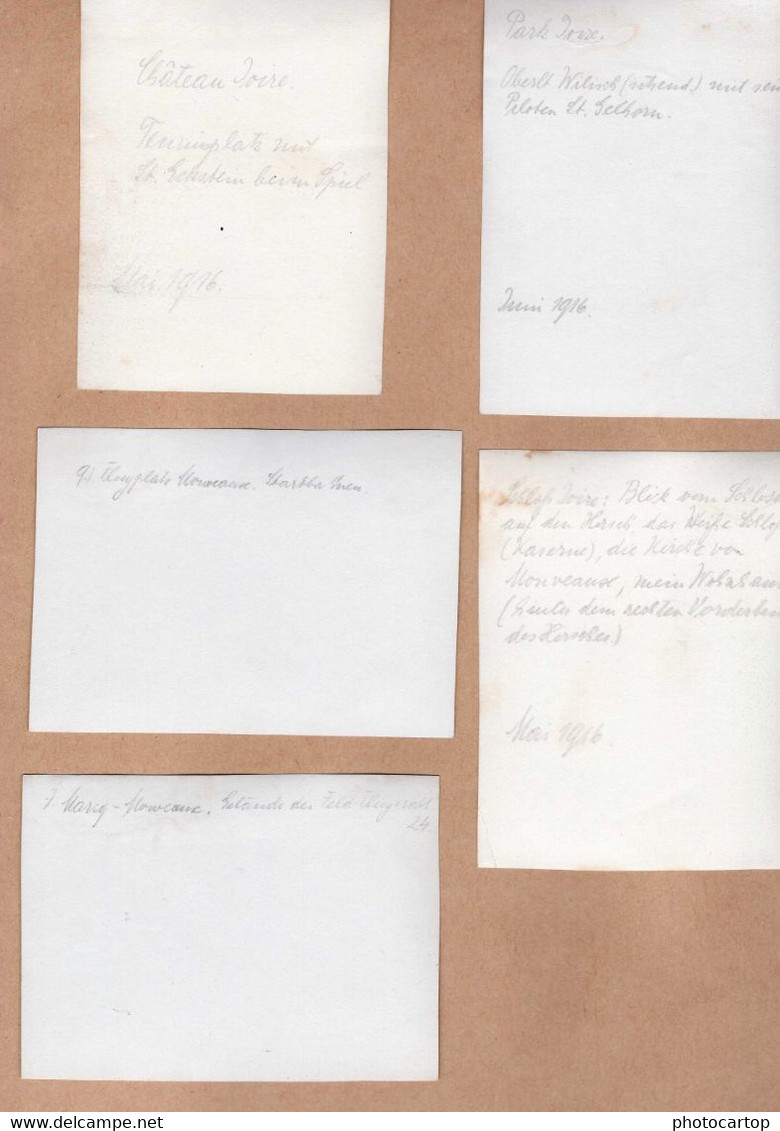 Château Loire.
Tennisplatz mit
Lt. Eckstein beim Spiel
Mai 1916.
Park Loire.
Oberlt Wilisch (sitzend) mit sein
Piloten Lt. Gelhorn.
Juni 1916.
9) Flugplatz Mouveaux. Startbahnen.
Schloß Loire: Blick vom Schloß
auf den Hirsch, das Weiße Schloß
(Kaserne), die Kirche von
Mouveaux, mein Wohnhaus
(hinter dem rechten Vorderbein
des Hirsches)
Mai 1916.
7 Marcq-Mouveaux. Gelände der Feld Flieger
24.
www.delcampe.net
photocartop